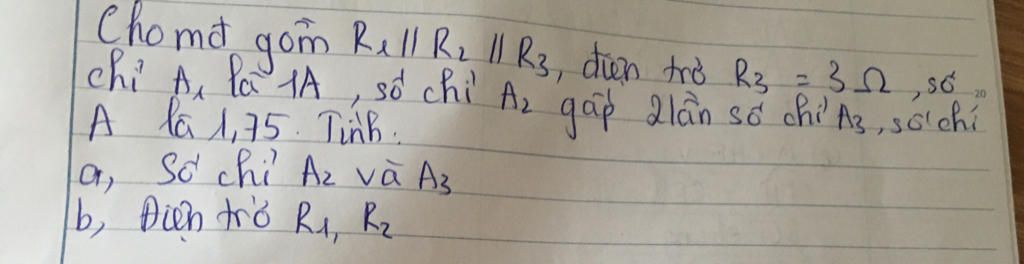 Cho mđ gồm R1 // R2 // R3, điện trở R3 = 3Ω, số
chỉ A1 là 1A, số chỉ A2 gấp 2 lần số chỉ A3, số chỉ
A là 1,75. Tính:
a, Số chỉ A2 và A3
b, Điện trở R1, R2